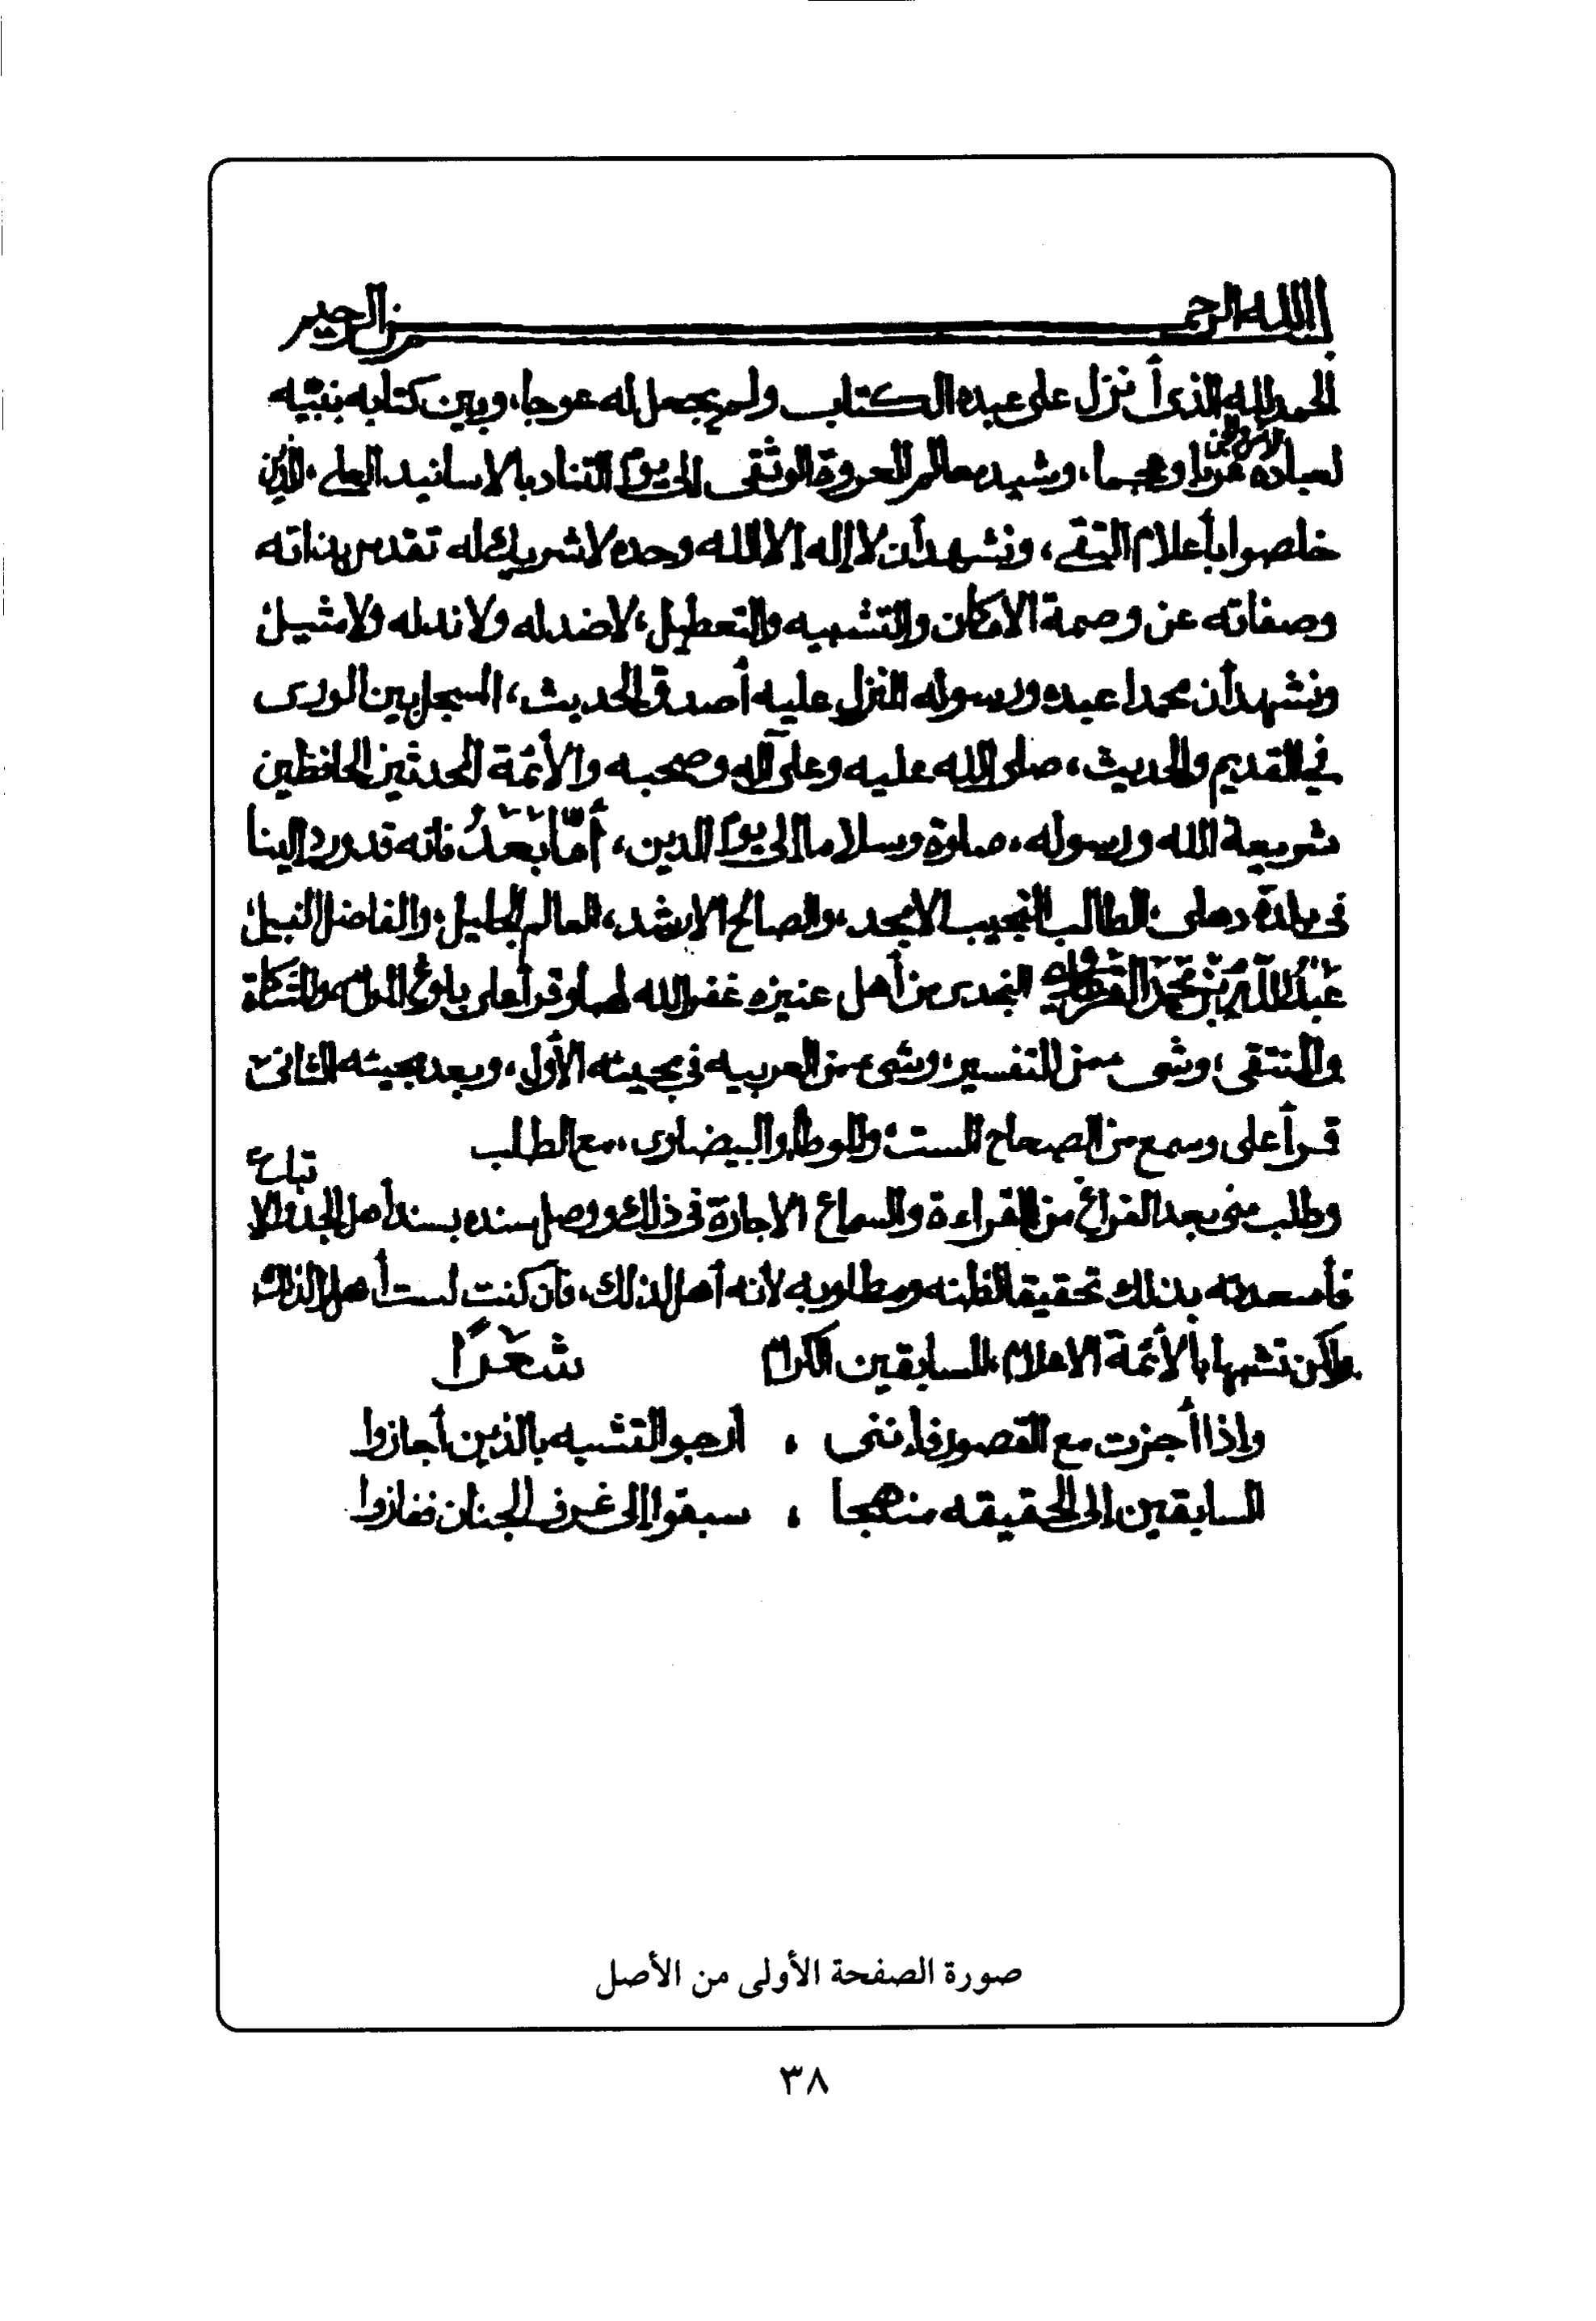 بسم الله الرحمن الرحيم
الحمد لله الذى أنزل على عبده الكتاب ولم يجعل له عوجا، وبين كتابه بنبيه
لعباده عربا وعجما، وشيد معالم العروة الوثقى الى يوم التناد بالاسانيد العلى، الذين
خلصوا بأعلام التقى، ونشهد أن لا إله إلا الله وحده لا شريك له تقدس بذاته
وصفاته عن وصمة الامكان والتشبيه والتعطيل، لاضدله ولا ندله ولا مثيل
ونشهد أن محمدا عبده ورسوله المنزل عليه أصدق الحديث، المبجل بين الورى
في القديم والحديث، صلى الله عليه وعلى آله وصحبه والأئمة المحدثين الحافظين
شريعة الله ورسوله، صلوة وسلاما الى يوم الدين، أمّا بَعْدُ فانه قد ورد إلينا
فى بلدة دهلى الطالب النجيب الامجد، والصالح الارشد، العالم الجليل، والفاضل النبيل
عبد الله بن محمد النجدى من أهل عنيزه غفر الله لهما وقرأ على بلوغ المرام والمشكاة
والمنتقى، وشى من التفسير، وشىء من العربيه فى مجيئه الأول، وبعد مجيئه الثانى
قرأ على وسمع من الصحاح الست، والموطا، والبيضاوى، مع الطلب
وطلب منى بعد الفراغ من القراءة والسماع الاجازة فى ذلك ووصل سنده بسند أهل الجد والا
فأسعدته بذلك تحقيقا لظنه ومطلوبه لأنه أهل لذلك، فان كنت لست أهلا لذلك
ولكن تشبها بالأئمة الاعلام السابقين الكرام شعرًا
واذا أجزت مع القصور فاننى ، أرجو التشبه بالذين أجازوا
السابقين الى الحقيقه منهجا ، سبقوا إلى غرف الجنان ففازوا
صورة الصفحة الأولى من الأصل
٣٨